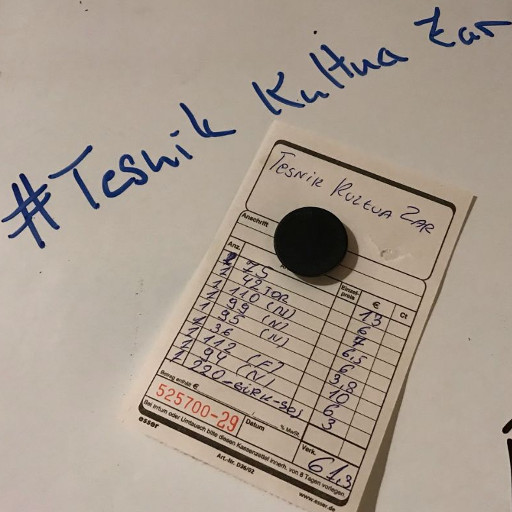 #Tesnik Kultua Zar
TESNIK KULTUA ZAR
Anschrift
Anz. Einzel-preis € Ct
1 75 13
1 42 TOR 6
1 110 (N) 7
1 99 (N) 6,5
1 95 (N) 6
1 36 3,8
1 112 (F) 10
1 94 (N) 6
1 220 3
Betrag enthält €
525700-29
Datum % MwSt.
Verk.
61,3
Bei Irrtum oder Umtausch bitte diesen Kassenzettel innerh. von 8 Tagen vorlegen.
esser Art.-Nr. D36/02 www.esser.de